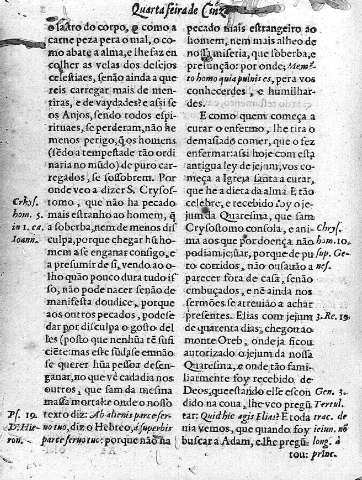 Quarta feira de Cinza
o lastro do corpo, e como a
carne peza pera o mal, o co-
mo abate a alma, e lhe faz en
colher as velas dos desejos
celestiaes, senão ainda a que
reis carregar mais de men-
tiras, e de vaydades? e assi se
os Anjos, sendo todos espi-
rituaes, se perderam, não he
menos perigo, q̃ os homens
(sẽdo a tempestade tão ordi
naria no mũdo) de puro car-
regados, se sossobrem. Por
onde veo a dizer S. Crysos-
tomo, que não ha pecado
mais estranho ao homem, q̃
a soberba, nem de menos dis
culpa, porque chegar hũ ho-
mem a se enganar consigo, e
a presumir de si, vendo ao o-
lho quão pouco dura tudo is
so, não pode nacer senão de
manifesta doudice, porque
aos outros pecados, pode se
dar por disculpa o gosto del
les (posto que nenhũa tẽ sufi
ciẽte: mas este fũdase em não
se querer hũa pessoa desen-
ganar, no que vẽ cada dia nos
outros, que sam da mesma
massa mortal e onde o nosso
texto diz: Ab alienis parce ser-
vo tuo, diz o Hebreo, à superbis
parce servo tuo: porque não ha
Chrys.
hom. 5.
in 1. ca.
Ioann.
Ps. 19.
D. Hie-
ron.
pecado mais estrangeiro ao
homem, nem mais alheo de
nossa miseria, que soberba, e
presunção: por onde: Memẽ-
to homo quia pulvis es, pera vos
conhecerdes, e humilhar-
des.
E como quem começa a
curar o enfermo, lhe tira o
demasiado comer, que o fez
enfermar: assi hoje com esta
antigua ley de jejum, vos co
meça a Igreja santa a curar,
que he a dieta da alma. E tão
celebre, e recebido foy o je-
jum da Quaresma, que sam
Crysostomo consola, e ani-
ma aos que por doença não
podiam jejũar, porque de pu
ro corridos, não ousarão a
parecer fora de casa, senão
embuçados, e nẽ ainda nos
sermões se atrevião a achar
presentes. Elias com jejum
de quarenta dias, chegou ao
monte Oreb, onde ja ficou
autorizado o jejum da nossa
Quaresma, e onde tão fami-
liarmente foy recebido de
Deos, que estando elle escon
dido na cova, lhe veo pregũ
tar: Quid hic agis Elias? E toda
via vemos, que quando foy
buscar a Adam, e lhe pregũ
tou:
Chry.
hom. 10.
sup. Ge-
nes.
3. Re. 19.
Gen. 3.
Tertul.
trac. de
ieiun. nõ
long. à
princ.